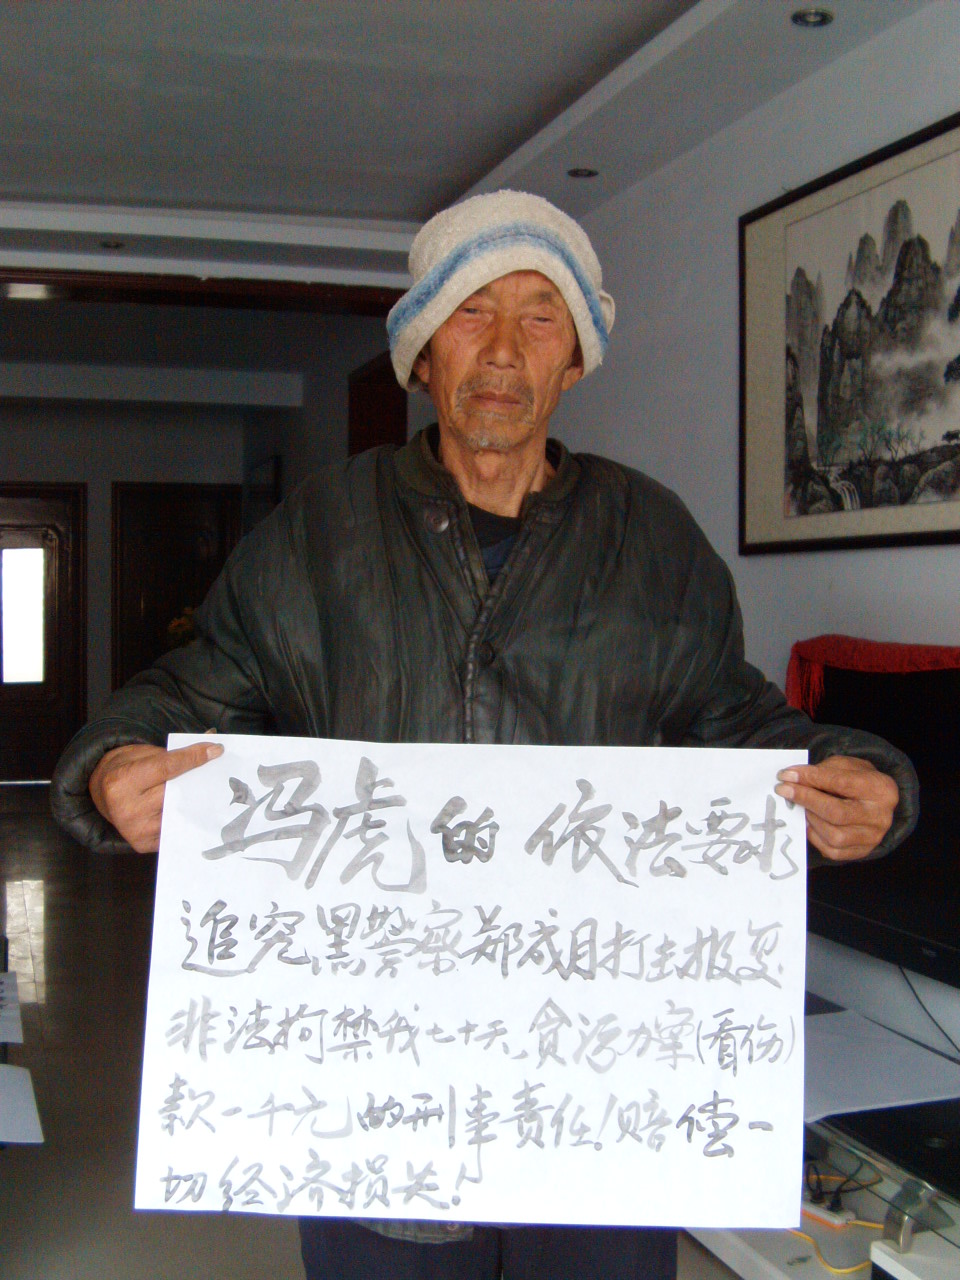 冯虎的依法要求
追究黑警察郑成月打击报复
非法拘禁我七十天、贪污办案(看伤)
款一千元的刑事责任!赔偿一
切经济损失!